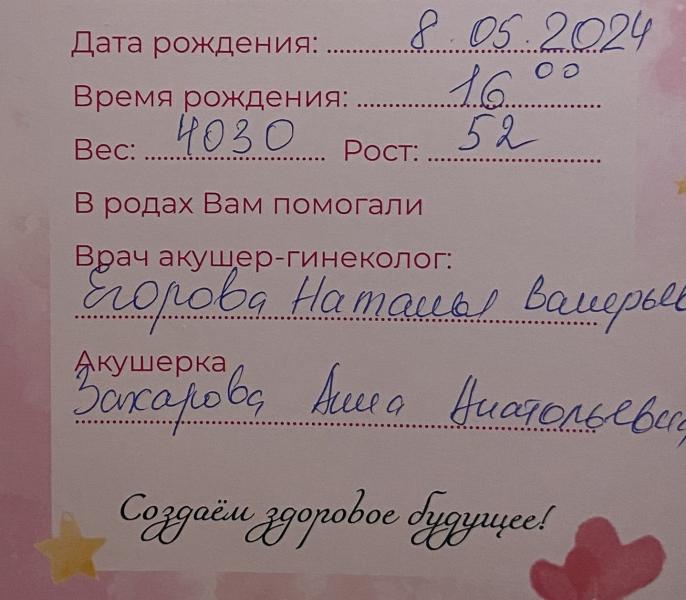 Дата рождения: 8.05.2024
Время рождения: 16 00
Вес: 4030 Рост: 52
В родах Вам помогали
Врач акушер-гинеколог:
Егорова Наталья Валерьев
Акушерка
Захарова Анна Анатольевна
Создаём здоровое будущее!